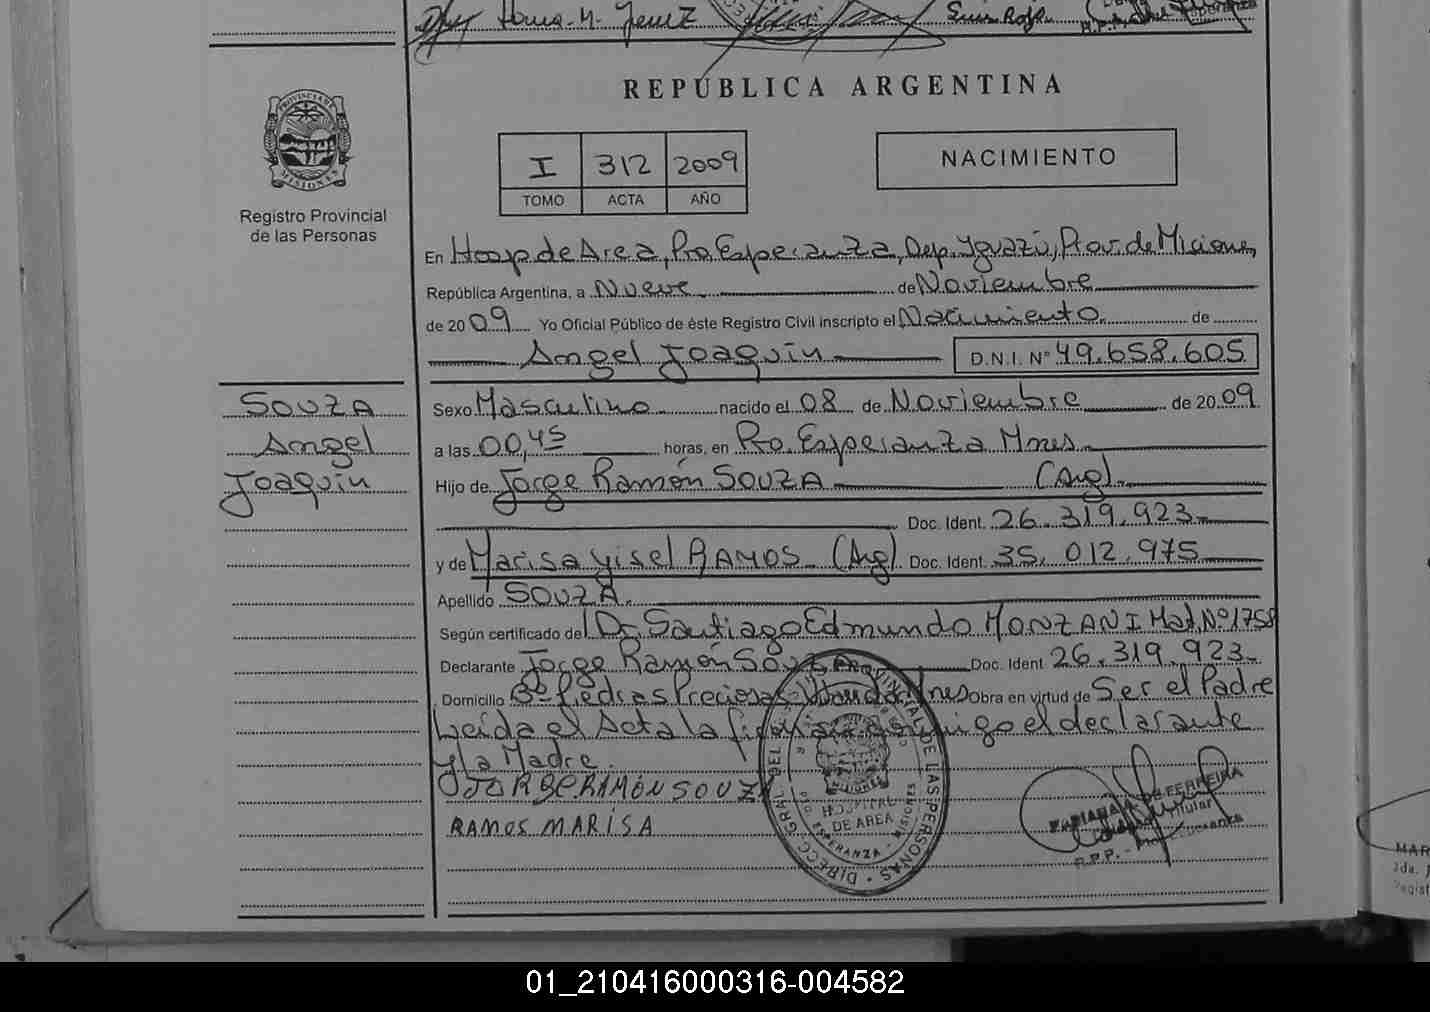 Luis Roja
REPÚBLICA ARGENTINA
PROVINCIA DE
MISIONES
Registro Provincial
de las Personas
I 312 2009
TOMO ACTA AÑO
NACIMIENTO
En Hosp de Area, Pto. Esperanza, Dep. Yguazú, Prov. de Misiones,
República Argentina, a Nueve de Noviembre
de 2009 Yo Oficial Público de éste Registro Civil inscripto el Nacimiento de
Angel Joaquin D.N.I. N° 49.658.605
SOUZA
Angel
Joaquin
Sexo Masculino nacido el 08 de Noviembre de 2009
a las 00,45 horas, en Pto. Esperanza Mnes.
Hijo de Jorge Ramón SOUZA (Arg).
Doc. Ident. 26.319.923
y de Marisa Yisel RAMOS (Arg) Doc. Ident. 35.012.975
Apellido SOUZA.
Según certificado del Dr. Santiago Edmundo MANZANI Mat. N° 1758
Declarante Jorge Ramón SOUZA Doc. Ident 26.319.923
Domicilio B° Piedras Preciosas Wanda Mnes Obra en virtud de Ser el Padre
Leída el Acta la firman conmigo el declarante
y la Madre.
JORGE RAMÓN SOUZA
RAMOS MARISA
DIRECC. GRAL. DEL REGIS. PROVINCIAL DE LAS PERSONAS
MISIONES
HOSPITAL
DE AREA
PTO. ESPERANZA - MISIONES
DE FERREIRA
Titular
R.P.P. -
MAR
2da.
Regist
01_210416000316-004582